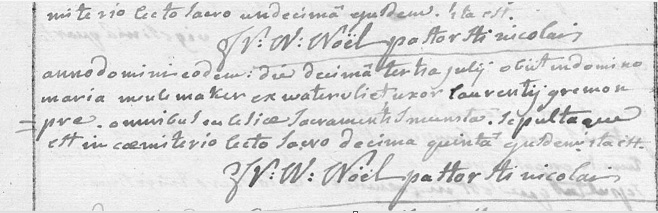 miterio lecto sacro undecimâ ejusdem. Ita est.
J∴ N∴ Noël pastor sti nicolais
anno domini eodem: die decimâ tertia julij obiit in domino
maria mulemaker ex watervliet uxor laurentij gremon
pre. omnibus eclesiæ sacramentis munita. sepultaque
est in cæmiterio lecto sacro decima quinta ejusdem. ita est.
J∴ N∴ Noël pastor sti nicolais